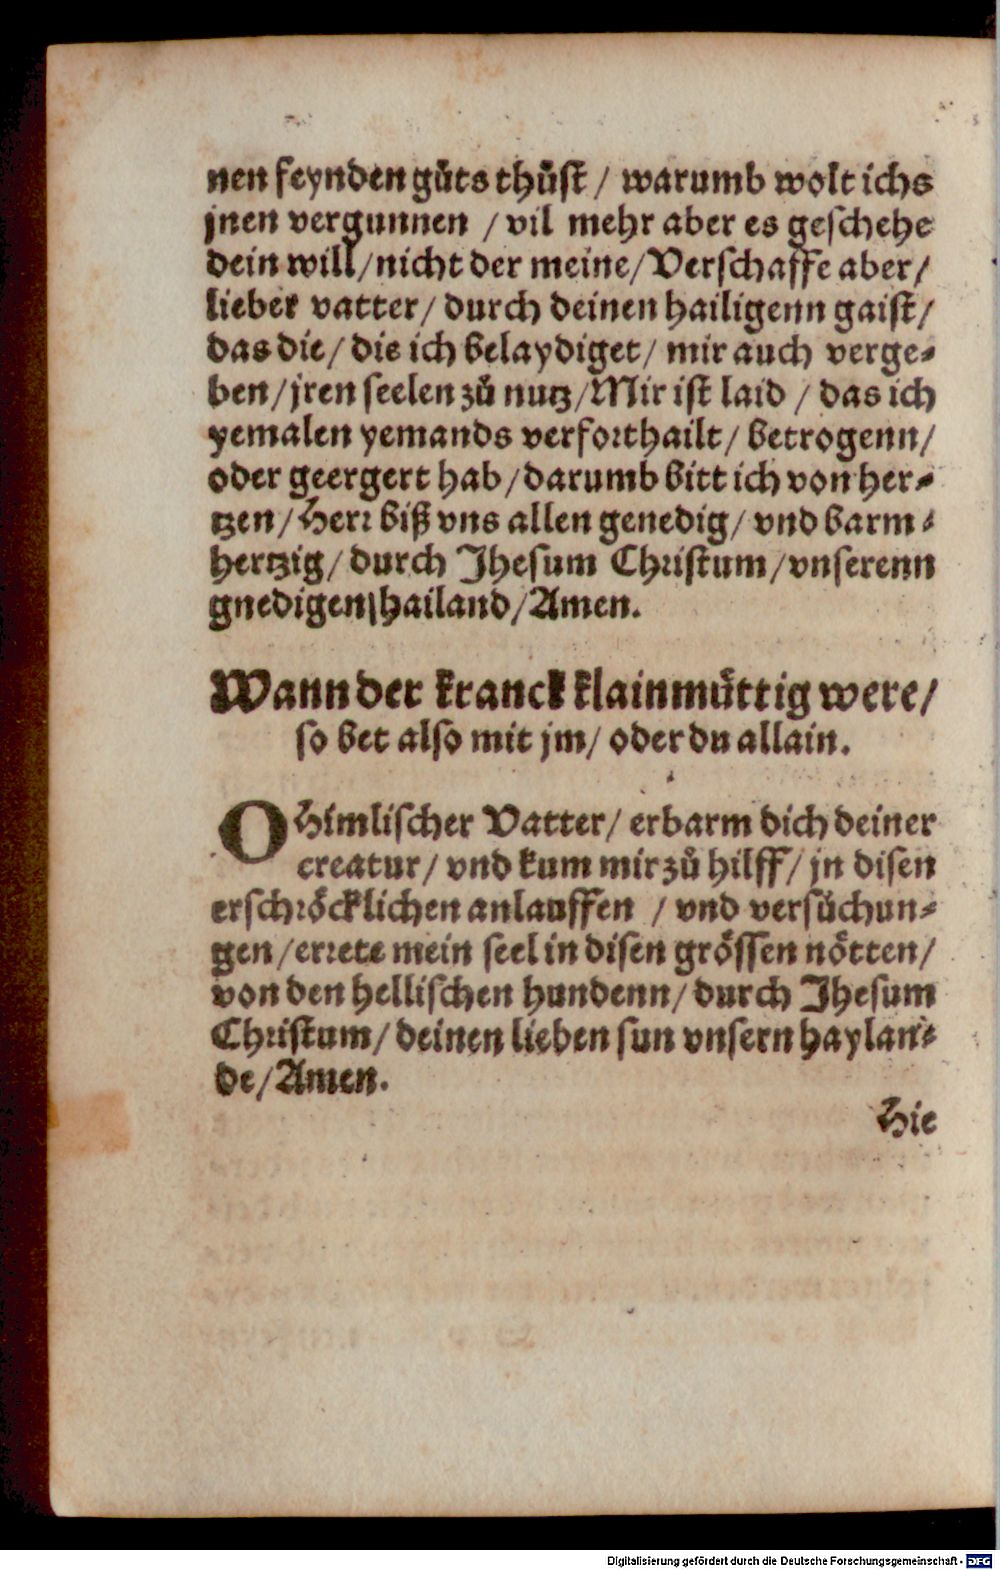 nen feynden guͦts thuͦst / warumb wolt ichs
jnen vergunnen / vil mehr aber es geschehe
dein will / nicht der meine / Verschaffe aber /
lieber vatter / durch deinen hailigenn gaist /
das die / die ich belaydiget / mir auch verge⸗
ben / jren seelen zuͦ nutz / Mir ist laid / das ich
yemalen yemands verforthailt / betrogenn /
oder geergert hab / darumb bitt ich von her⸗
tzen / Herr biß vns allen genedig / vnd barm⸗
hertzig / durch Jhesum Christum / vnserenn
gnedigen hailand / Amen.
Wann der kranck klainmuͤttig were /
so bet also mit jm / oder du allain.
O Himlischer Vatter / erbarm dich deiner
creatur / vnd kum mir zuͦ hilff / jn disen
erschroͤcklichen anlauffen / vnd versuͦchun⸗
gen / errete mein seel in disen groͤssen noͤtten /
von den hellischen hundenn / durch Jhesum
Christum / deinen lieben sun vnsern haylan⸗
de / Amen.
Hie
Digitalisierung gefördert durch die Deutsche Forschungsgemeinschaft - DFG